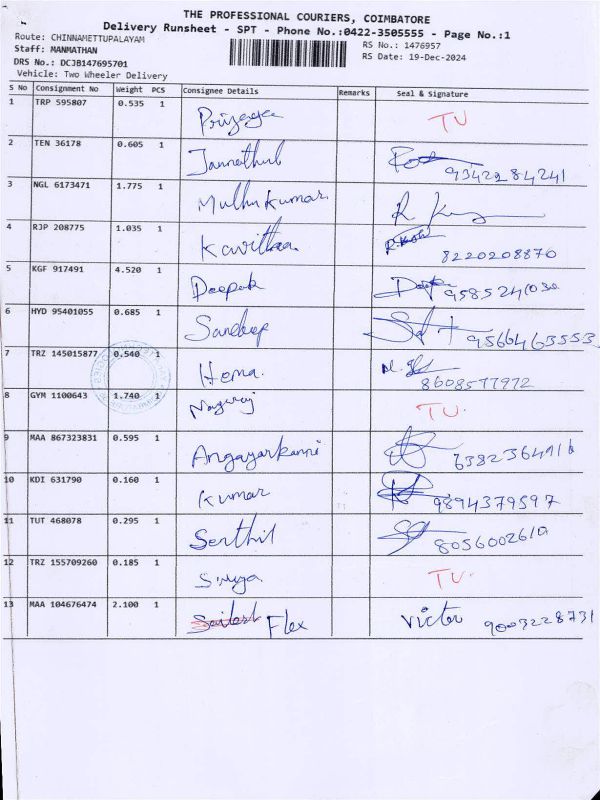 THE PROFESSIONAL COURIERS, COIMBATORE
Delivery Runsheet - SPT - Phone No.:0422-3505555 - Page No.:1
Route: CHINNAMETTUPALAYAM RS No.: 1476957
Staff: MANMATHAN RS Date: 19-Dec-2024
DRS No.: DCJB147695701
Vehicle: Two Wheeler Delivery
S No Consignment No Weight PCS Consignee Details Remarks Seal & Signature
1 TRP 595807 0.535 1 TU
2 TEN 36178 0.605 1 Jannathul 9342284241
3 NGL 6173471 1.775 1 Muthukumar
4 RJP 208775 1.035 1 Kavithaa 8220208870
5 KGF 917491 4.520 1 Deepak
6 HYD 95401055 0.685 1 Sandeep 9566463553
7 TRZ 145015877 0.540 1 Hema. 8608577972
8 GYM 1100643 1.740 1 Nagaraj TU.
9 MAA 867323831 0.595 1 Angayarkanni
10 KDI 631790 0.160 1 Kumar 9894379597
11 TUT 468078 0.295 1 Senthil
12 TRZ 155709260 0.185 1 TU.
13 MAA 104676474 2.100 1 Flex Victor 9003228731